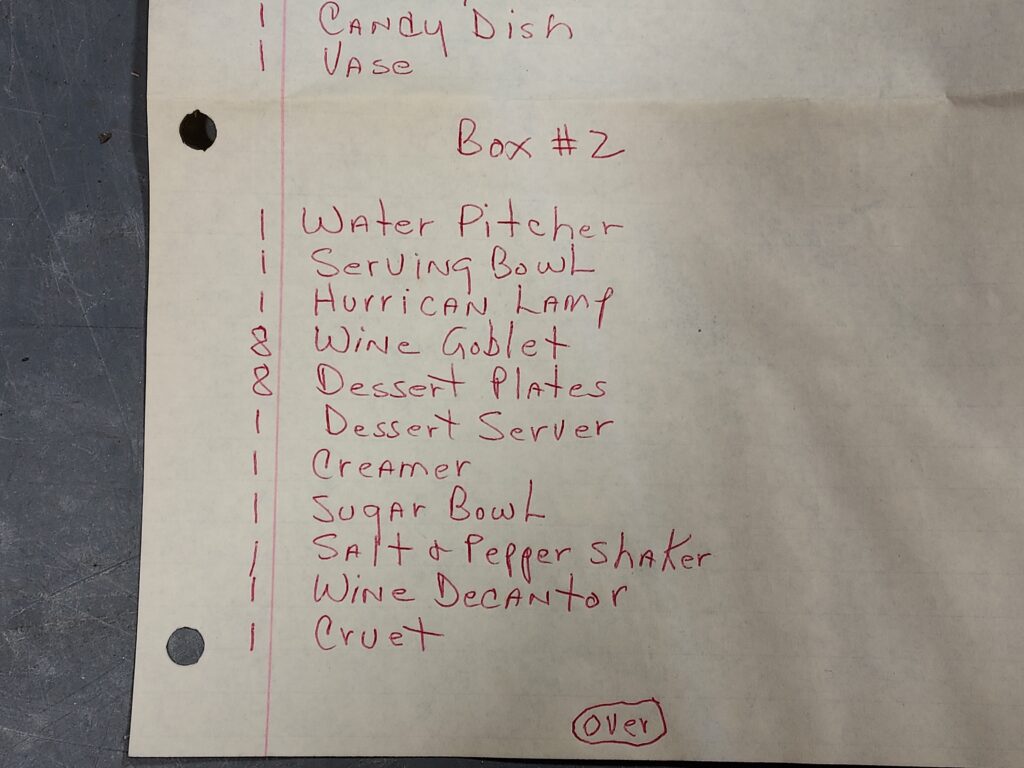 1 Candy Dish
1 Vase
Box #2
1 Water Pitcher
1 Serving Bowl
1 Hurrican Lamp
8 Wine Goblet
8 Dessert Plates
1 Dessert Server
1 Creamer
1 Sugar Bowl
1 Salt & Pepper Shaker
1 Wine Decantor
1 Cruet
Over